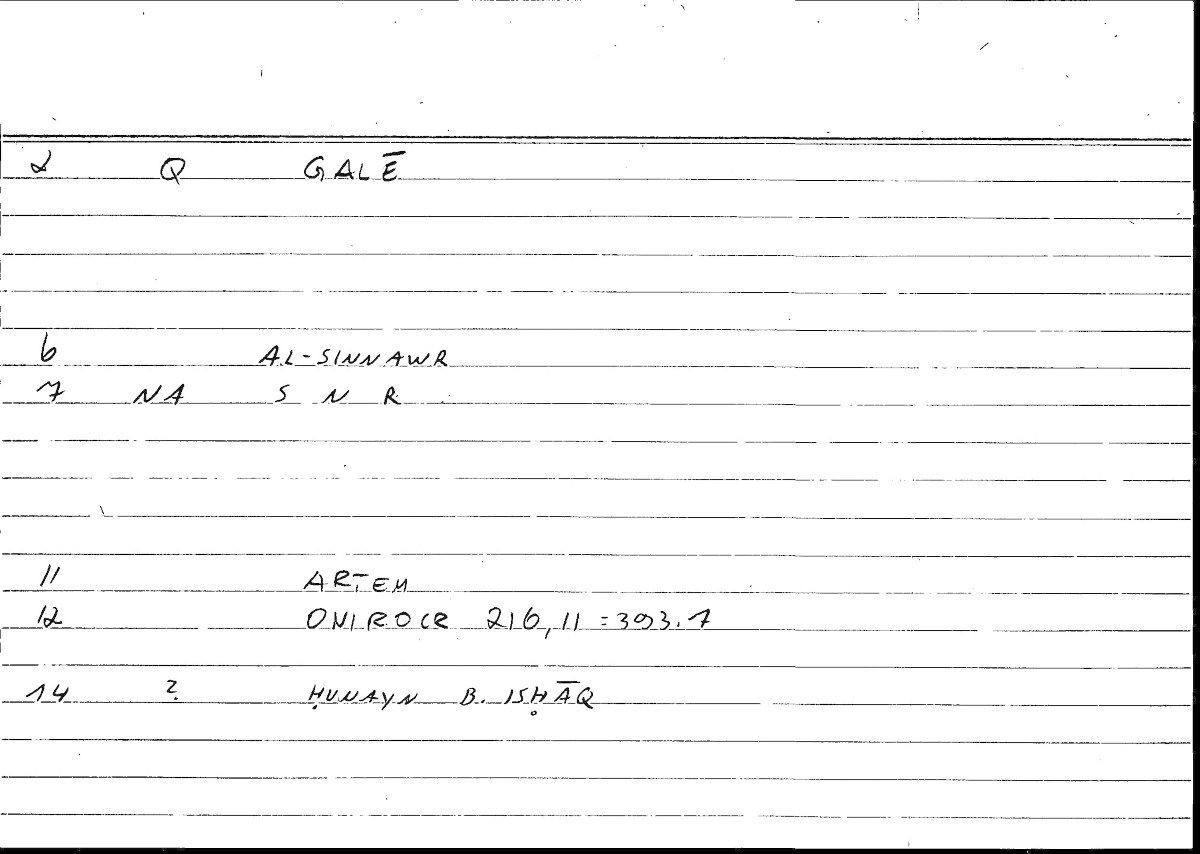 2 Q GALĒ
6 AL-SINNAWR
7 NA S N R
11 ARTEM
12 ONIROCR 216,11 = 393.7
14 ? ḤUNAYN B. ISḤĀQ